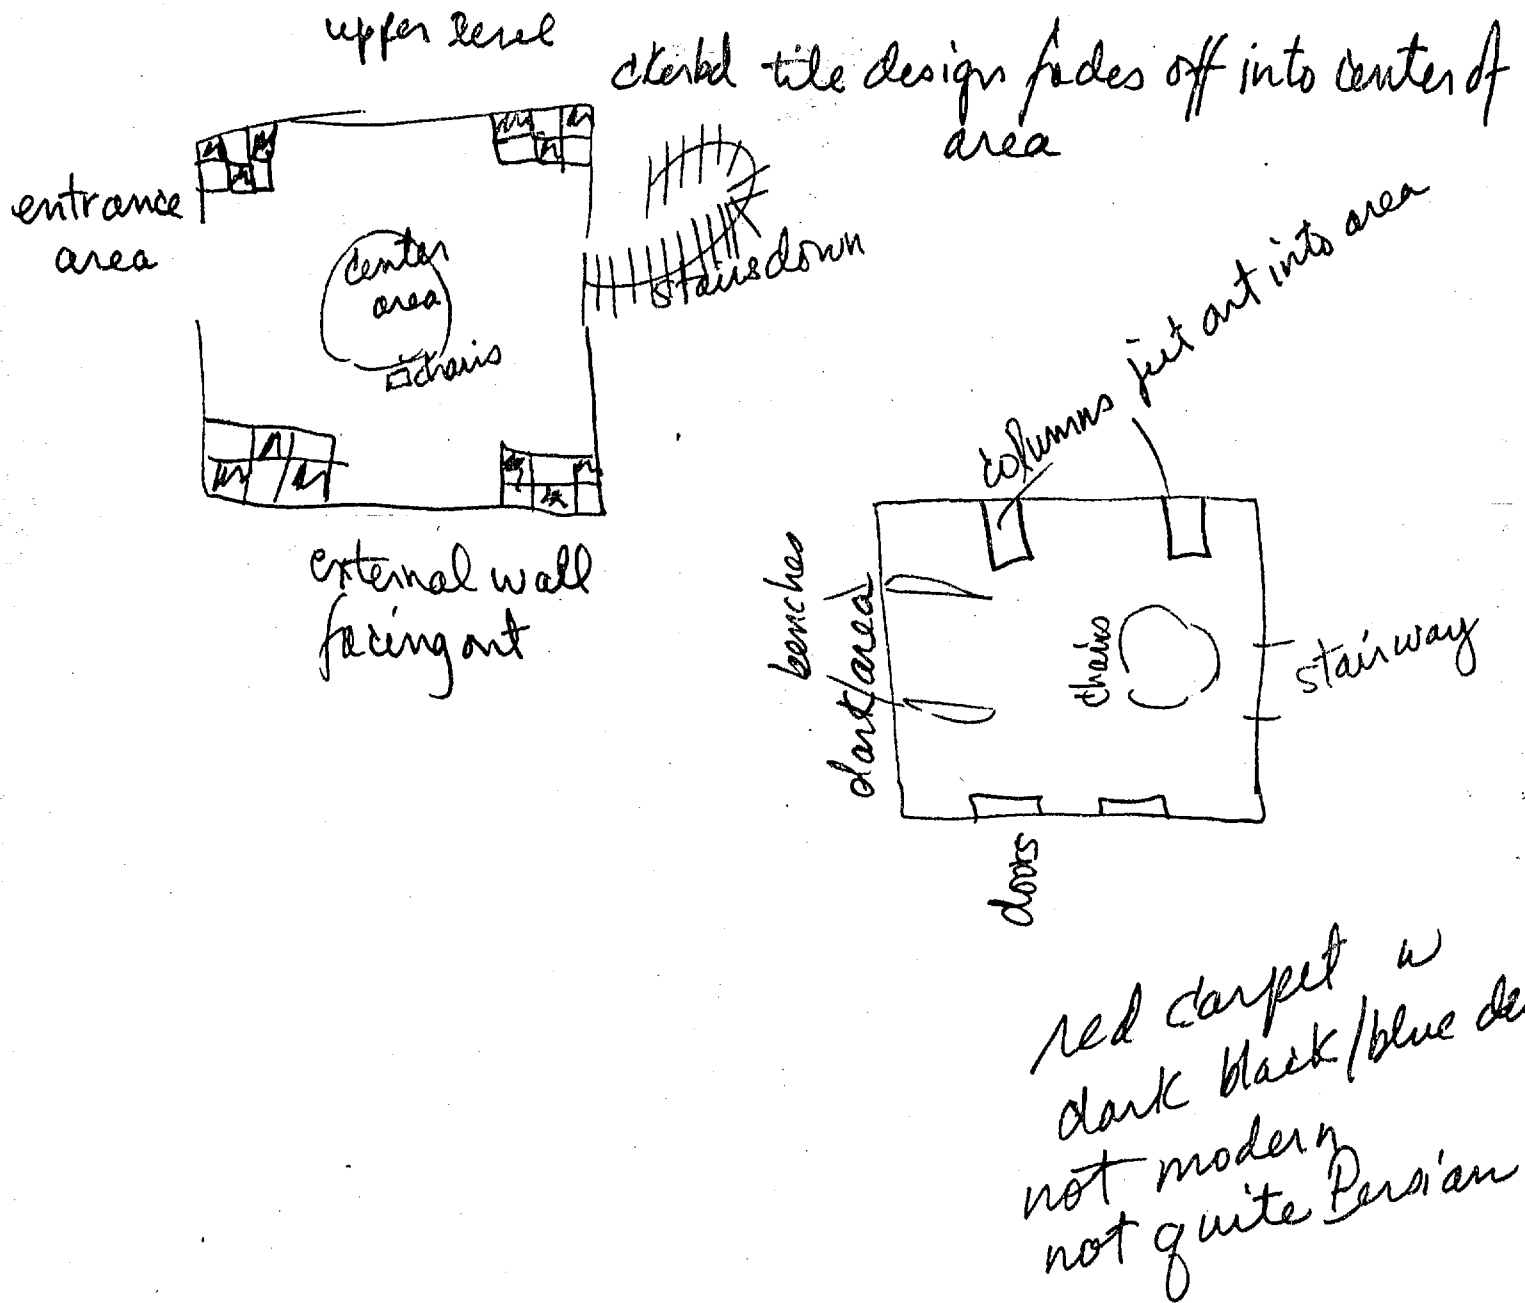 upper level
ckerbd tile design fades off into center of
area
entrance
area
center
area
chairs
stairs down
external wall
facing out
columns jut out into area
benches
dark/area
chairs
stairway
doors
red carpet w
dark black/blue de
not modern
not quite Persian